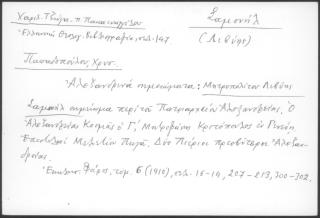 Χαριλ. Τζώγα - π. Παπαευαγγέλου
Ἑλληνική Θεολογ. Βιβλιογραφία, σελ. 147
Σαμουήλ
(Λιβύης)
Παπαδόπουλος, Χρυσ.
Ἀλεξανδρινά σημειώματα: Μητροπολίτου Λιβύης
Σαμουήλ σημείωμα περί τά Πατριαρχεῖα Ἀλεξανδρείας. Ὁ
Ἀλεξανδρείας Κοσμᾶς ὁ Γ΄, Μητροφάνης Κριτόπουλος ἐν Γενεύῃ.
Ἐπιστολαί Μελετίου Πηγᾶ. Δύο Πιέριοι πρεσβύτεροι Ἀλεξαν-
δρείας.
Ἐκκλησ. Φάρος, τόμ. 6 (1910), σελ. 10-14, 207-213, 300-302.